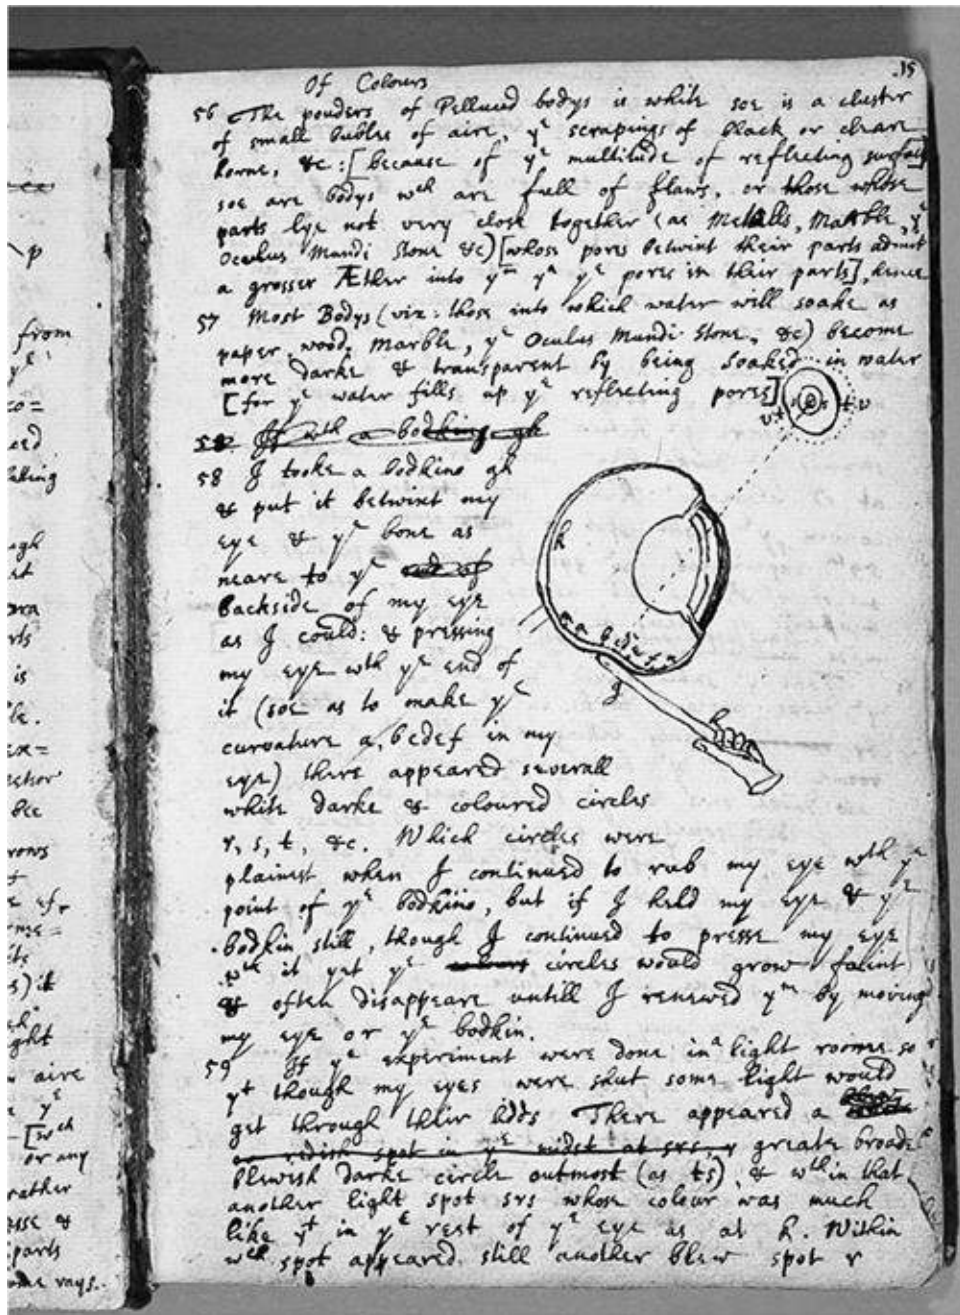 from
is
aire
or any
rather
parts
rays.
15
Of Colours
56 The pouders of Pellucid bodys is white soe is a cluster
of small bubles of aire, yᵉ scrapings of black or cleare
horne, &c: [because of yᵉ multitude of reflecting surfaces]
soe are bodys wᶜʰ are full of flaws, or those whose
parts lye not very close together (as Metalls, Marble, yᵉ
Oculus Mundi Stone &c) [whose pores betwixt their parts admit
a grosser Æther into yᵐ yⁿ yᵉ pores in their parts], hence
57 Most Bodys (viz: those into which water will soake as
paper, wood, Marble, yᵉ Oculus Mundi Stone, &c) become
more darke & transparent by being soaked in water
[for yᵉ water fills up yᵉ reflecting pores]
58 If wᵗʰ a bodkine gh
58 I tooke a bodkine gh
& put it betwixt my
eye & yᵉ bone as
neare to yᵉ
backside of my eye
as I could: & pressing
my eye wᵗʰ yᵉ end of
it (soe as to make yᵉ
curvature a, bcdef in my
eye) there appeared severall
white darke & coloured circles
r, s, t, &c. Which circles were
plainest when I continued to rub my eye wᵗʰ yᵉ
point of yᵉ bodkine, but if I held my eye & yᵉ
bodkin still, though I continued to presse my eye
wᵗʰ it yet yᵉ circles would grow faint
& often disappeare untill I renewed yᵐ by moving
my eye or yᵉ bodkin.
59 If yᵉ experiment were done in a light roome so
yᵗ though my eyes were shut some light would
get through their lidds There appeared a
redish spot in yᵉ midst at srs, greate broade
blewish darke circle outmost (as ts), & wᵗʰin that
another light spot srs whose colour was much
like yᵗ in yᵉ rest of yᵉ eye as at k. Within
wᶜʰ spot appeared still another blew spot r